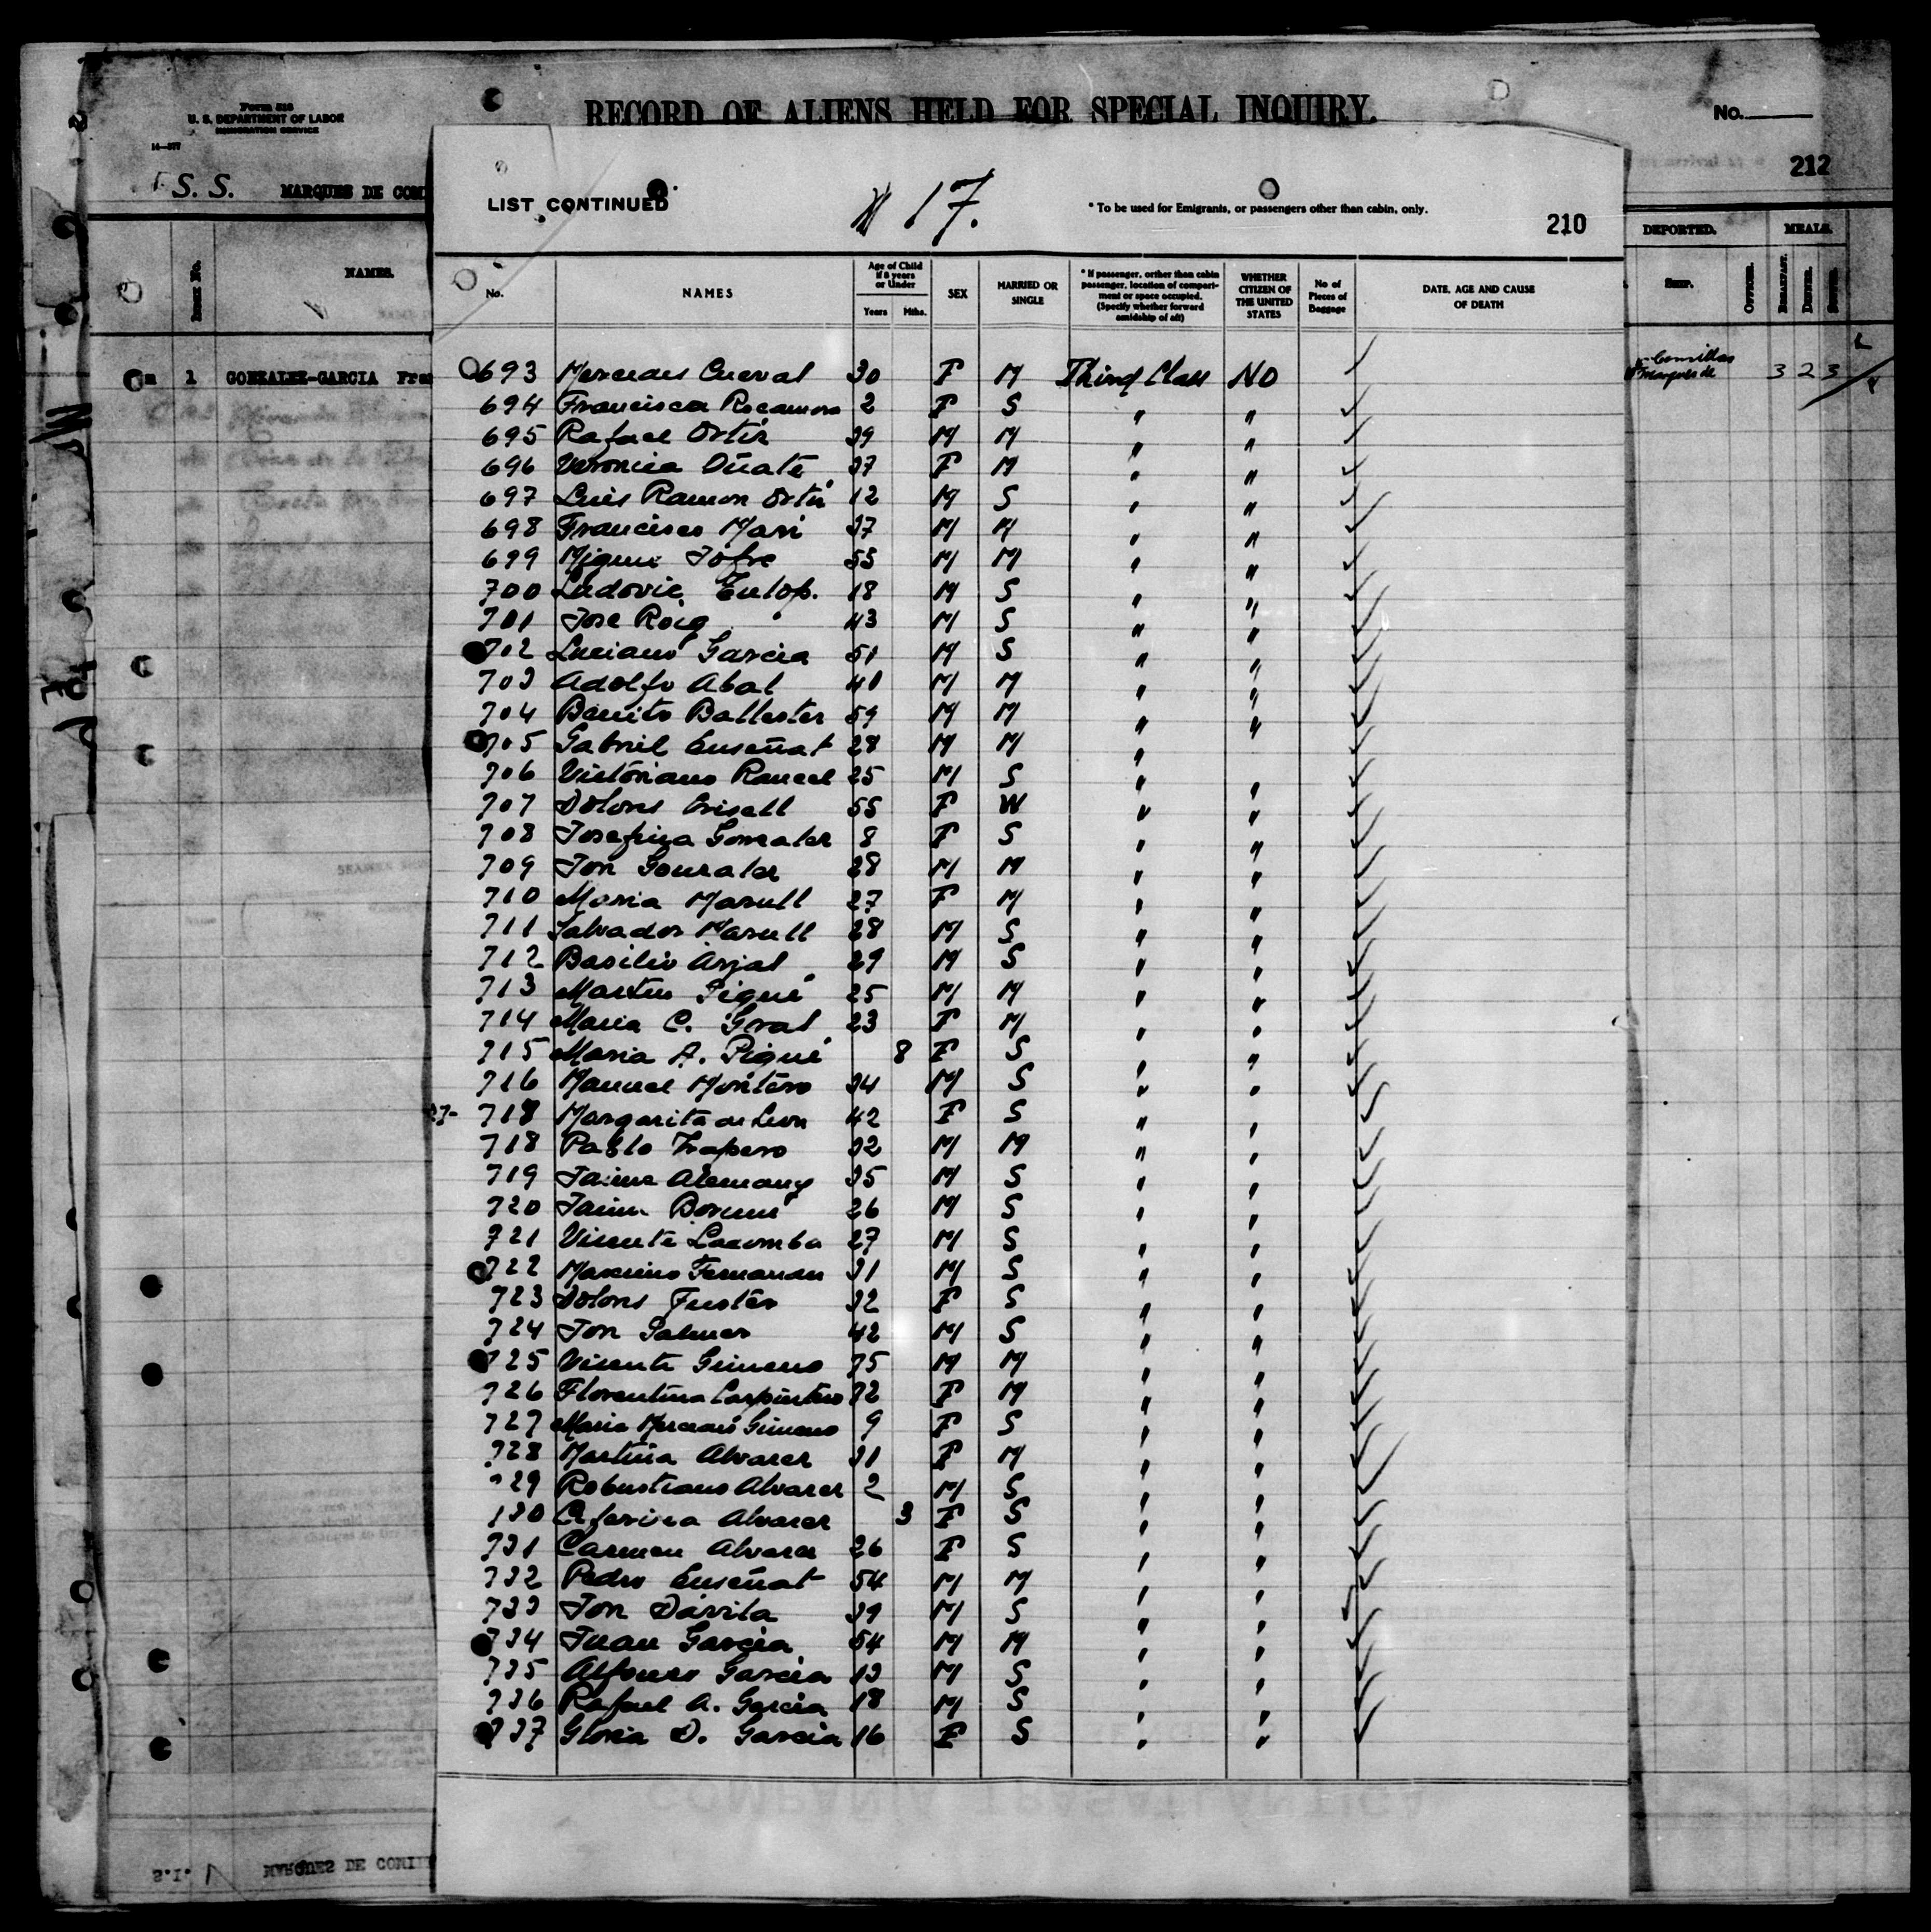 Form 525
U. S. DEPARTMENT OF LABOR
IMMIGRATION SERVICE
14—577
RECORD OF ALIENS HELD FOR SPECIAL INQUIRY.
No.
212
S. S. MARQUES DE COMI
LIST CONTINUED
17.
* To be used for Emigrants, or passengers other than cabin, only.
210
DEPORTED. MEALS.
NAMES.
SHIP. OFFICER. BREAKFAST. DINNER. SUPPER.
No. NAMES Age of Child if 8 years or Under Years Mths. SEX MARRIED OR SINGLE * If passenger, orther than cabin passenger, location of compartment or space occupied. (Specify whether forward amidship of aft) WHETHER CITIZEN OF THE UNITED STATES No of Pieces of Baggage DATE, AGE AND CAUSE OF DEATH
1 GONZALEZ-GARCIA Fran
Comillas
Marques de 3 2 3
693 Mercedes Cueval 30 F M Third Class No
694 Francisca Rocamora 2 F S " "
695 Rafael Ortiz 39 M M " "
696 Veronica Oñate 37 F M " "
697 Luis Ramon Ortiz 12 M S " "
698 Francisco Mari 37 M M " "
699 Miguel Jofre 55 M M " "
700 Ludovic Eulop. 18 M S " "
701 Jose Roig 43 M S " "
702 Luciano Garcia 51 M S " "
703 Adolfo Abal 40 M M " "
704 Benito Ballester 59 M M " "
705 Gabriel Enseñat 28 M M "
706 Victoriano Rancel 25 M S " "
707 Dolores Crisell 55 F W " "
708 Josefina Gonzalez 8 F S " "
709 Jose Gonzalez 28 M M " "
710 Maria Marull 27 F M " "
711 Salvador Marull 28 M S " "
712 Basilio Arjal 29 M S " "
713 Martin Piqué 25 M M " "
714 Maria C. Goral 23 F M " "
715 Maria A. Piqué 8 F S " "
716 Manuel Montero 34 M S " "
27- 718 Margarita de Leon 42 F S " "
718 Pablo Trapero 32 M M " "
719 Jaime Alemany 35 M S " "
720 Jaime Borume 26 M S " "
721 Vicente Lacomba 27 M S " "
722 Maximo Fernandez 31 M S " "
723 Dolores Fuster 32 F S " "
724 Jose Palmer 42 M S " "
725 Vicente Gimeno 35 M M " "
726 Florentina Carpintero 32 F M " "
727 Maria Mercedes Gimeno 9 F S " "
728 Martina Alvarez 31 F M " "
729 Robustiano Alvarez 2 M S " "
730 Ceferina Alvarez 3 F S " "
731 Carmen Alvarez 26 F S " "
732 Pedro Enseñat 54 M M " "
733 Jose Dávila 39 M S " "
734 Juan Garcia 54 M M " "
735 Alfonso Garcia 13 M S " "
736 Rafael A. Garcia 18 M S " "
737 Gloria D. Garcia 16 F S " "
COMPAÑIA TRASATLANTICA
S.I. 1 MARQUES DE COMI